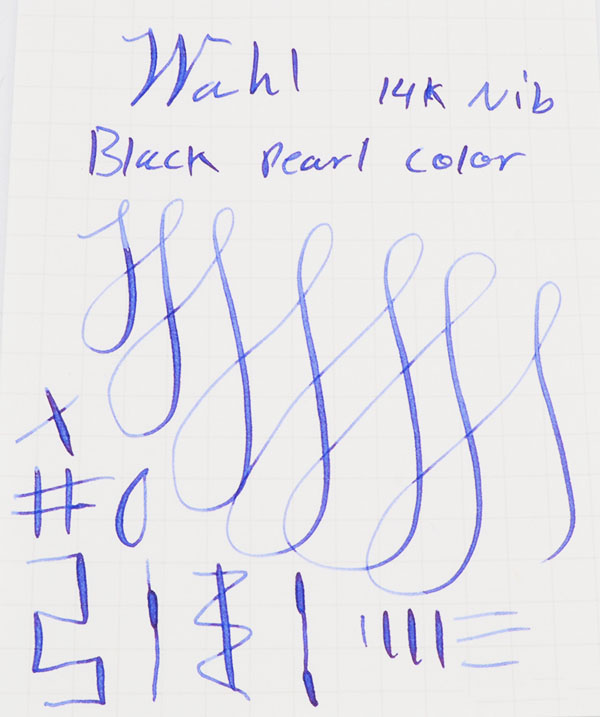 Wahl 14K Nib
Black Pearl color